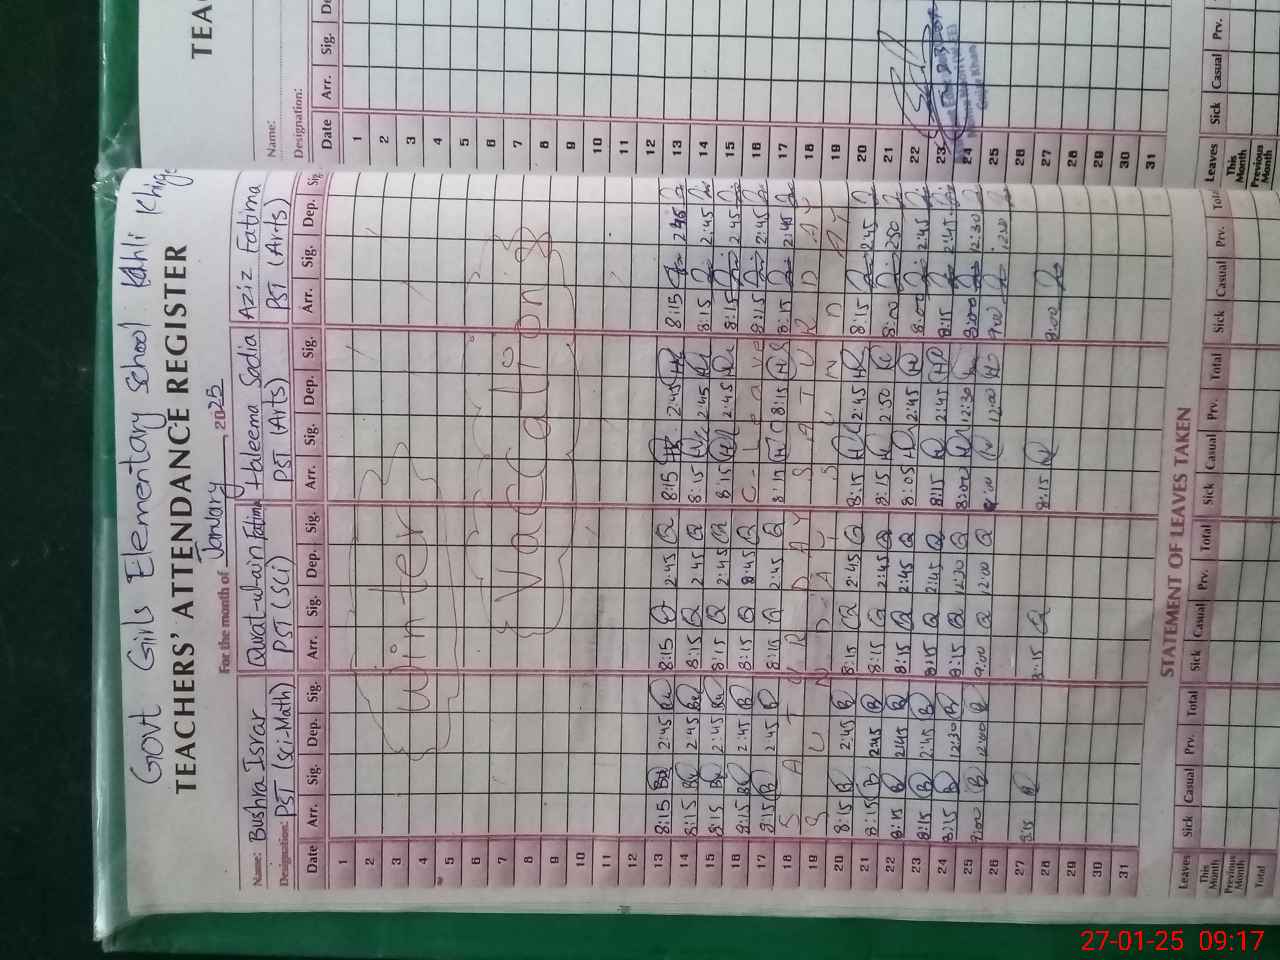 Govt Girls Elementary School
TEACHERS' ATTENDANCE REGISTER
For the month of January, 2025
Name: Bushra Israr Qurat-ul-ain Fatima Haleema Sadia Aziz Fatima
Designation: PST (Sci-Math) PST (Sci) PST (Arts) PST (Arts)
Date Arr. Sig. Dep. Sig. Arr. Sig. Dep. Sig. Arr. Sig. Dep. Sig. Arr. Sig. Dep. Sig.
1
2
3
4
5
6
7
8
9
10
11
12
Winter
Vaccation
13 8:15 2:45 8:15 2:45 8:15 2:45 8:15 2:45
14 8:15 2:45 8:15 2:45 8:15 2:45 8:15 2:45
15 8:15 2:45 8:15 2:45 8:15 2:45 8:15 2:45
16 8:15 2:45 8:15 8:45 C-Leave 8:15 2:45
17 8:15 2:45 8:15 2:45 8:15 8:15 2:45
18 SATURDAY SATURDAY
19 SUNDAY SUNDAY
20 8:15 2:45 8:15 2:45 8:15 2:45 8:15 2:45
21 8:15 2:45 8:15 2:45 8:15 2:50 8:00 2:50
22 8:15 2:45 8:15 2:45 8:05 2:45 8:00 2:45
23 8:15 2:45 8:15 2:45 8:15 2:41 8:15 2:41
24 8:15 12:30 8:15 12:30 8:00 12:30 8:00 12:30
25 9:00 12:00 9:00 12:00 9:00 12:00 9:00 12:00
26
27 8:15 8:15 8:15 8:00
28
29
30
31
STATEMENT OF LEAVES TAKEN
Leaves Sick Casual Prv. Total Sick Casual Prv. Total Sick Casual Prv. Total Sick Casual Prv. Total
This Month
Previous Month
Total
TEA
Name:
Designation:
Date Arr. Sig.
1
2
3
4
5
6
7
8
9
10
11
12
13
14
15
16
17
18
19
20
21
22
23
24
25
26
27
28
29
30
31
Leaves Sick Casual Prv.
This Month
Previous Month
27-01-25 09:17